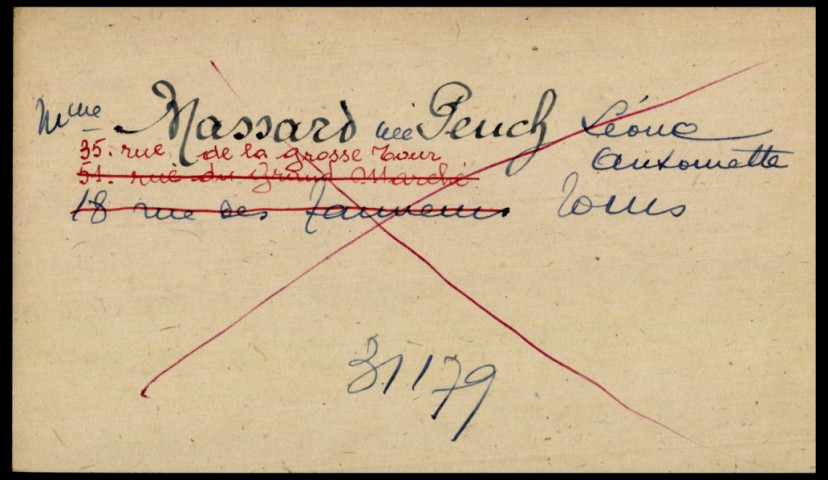 Mme Massard née Peuch Léone
Antoinette
35. rue de la grosse Tour
51. rue du Grand Marché
18 rue des Tanneurs Tours
31179